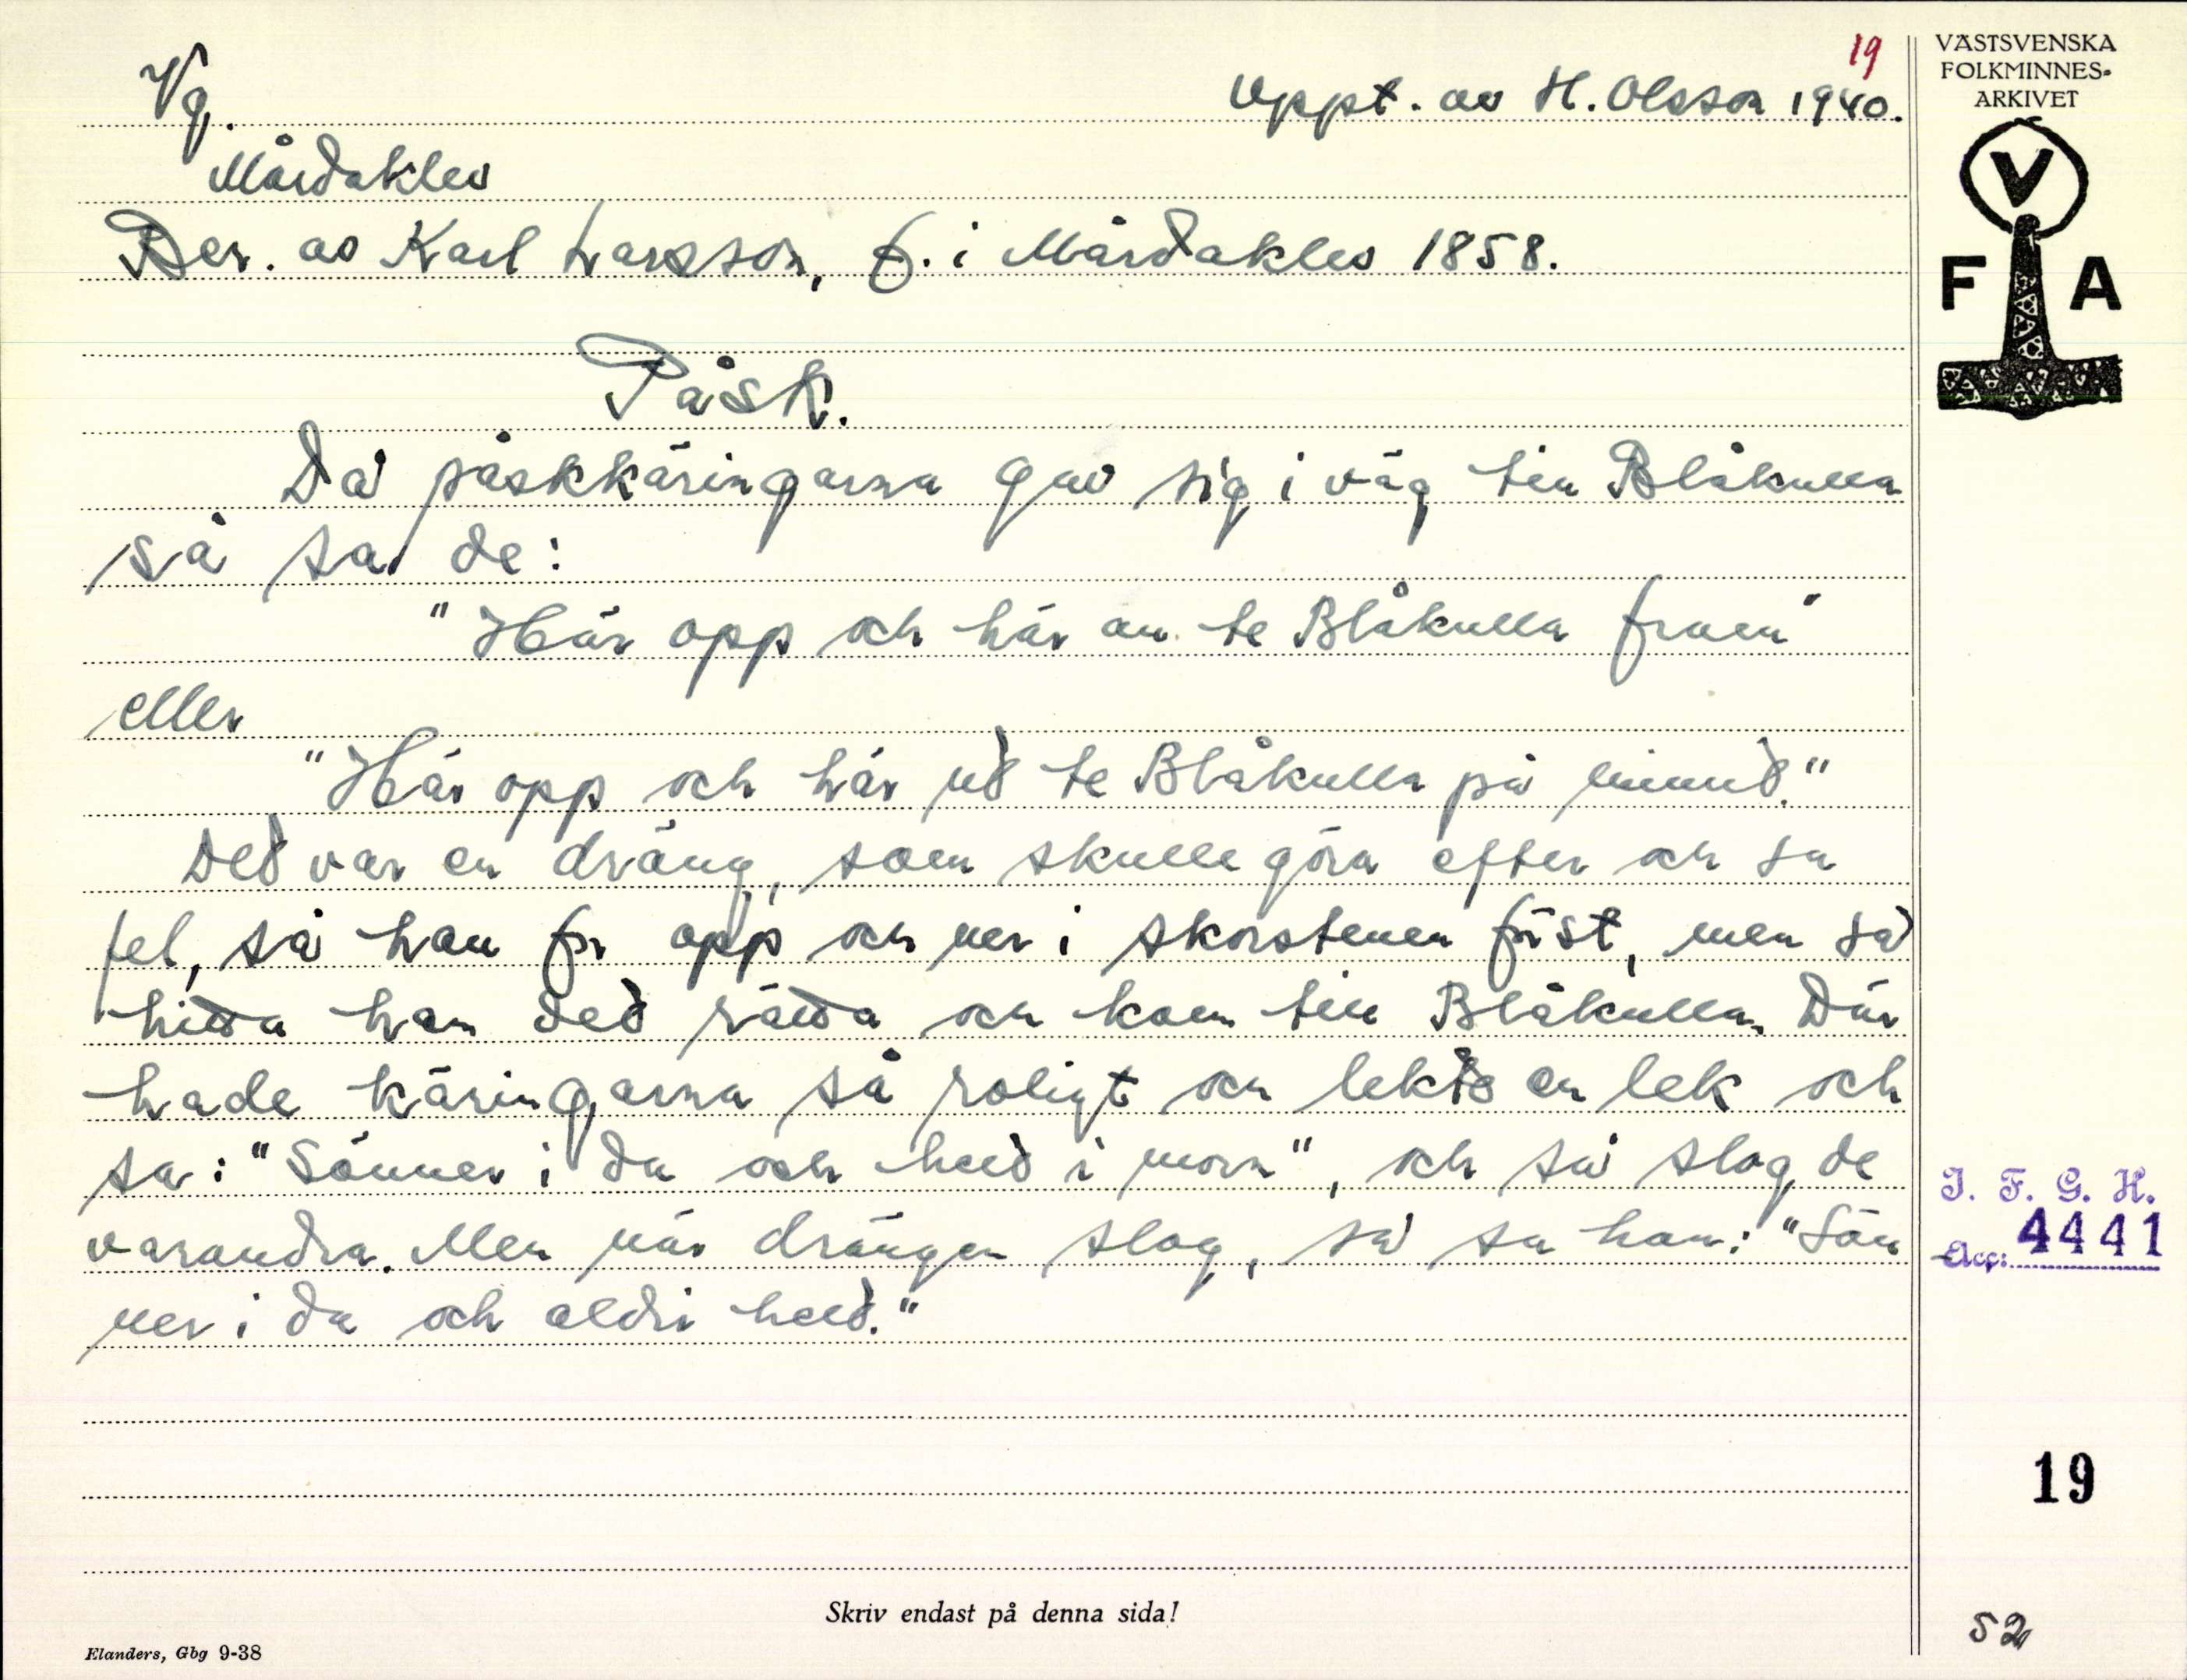 19
VÄSTSVENSKA
FOLKMINNES-
ARKIVET
Vg.
Uppt. av H. Olsson 1940.
Mårdaklev
Ber. av Karl Larsson, f. i Mårdaklev 1858.
V
F A
Påsk.
Då påskkäringarna gav sig i väg till Blåkulla
så sa de:
"Här opp och här an te Blåkulla fram"
eller
"Här opp och här ud te Blåkulla på minud."
Ded var en dräng, som skulle göra efter och sa
fel, så han for opp och ner i skorstenen föst, men så
hitta han ded rätta och kom till Blåkulla. Där
hade käringarna så roligt och lekte en lek och
sa: "Sönner i da och held i morn", och så slog de
varandra. Men när drängen slog, så sa han: "Sön
ner i da och aldri held."
I. F. G. H.
Acc: 4441
19
Skriv endast på denna sida!
52
Elanders, Gbg 9-38